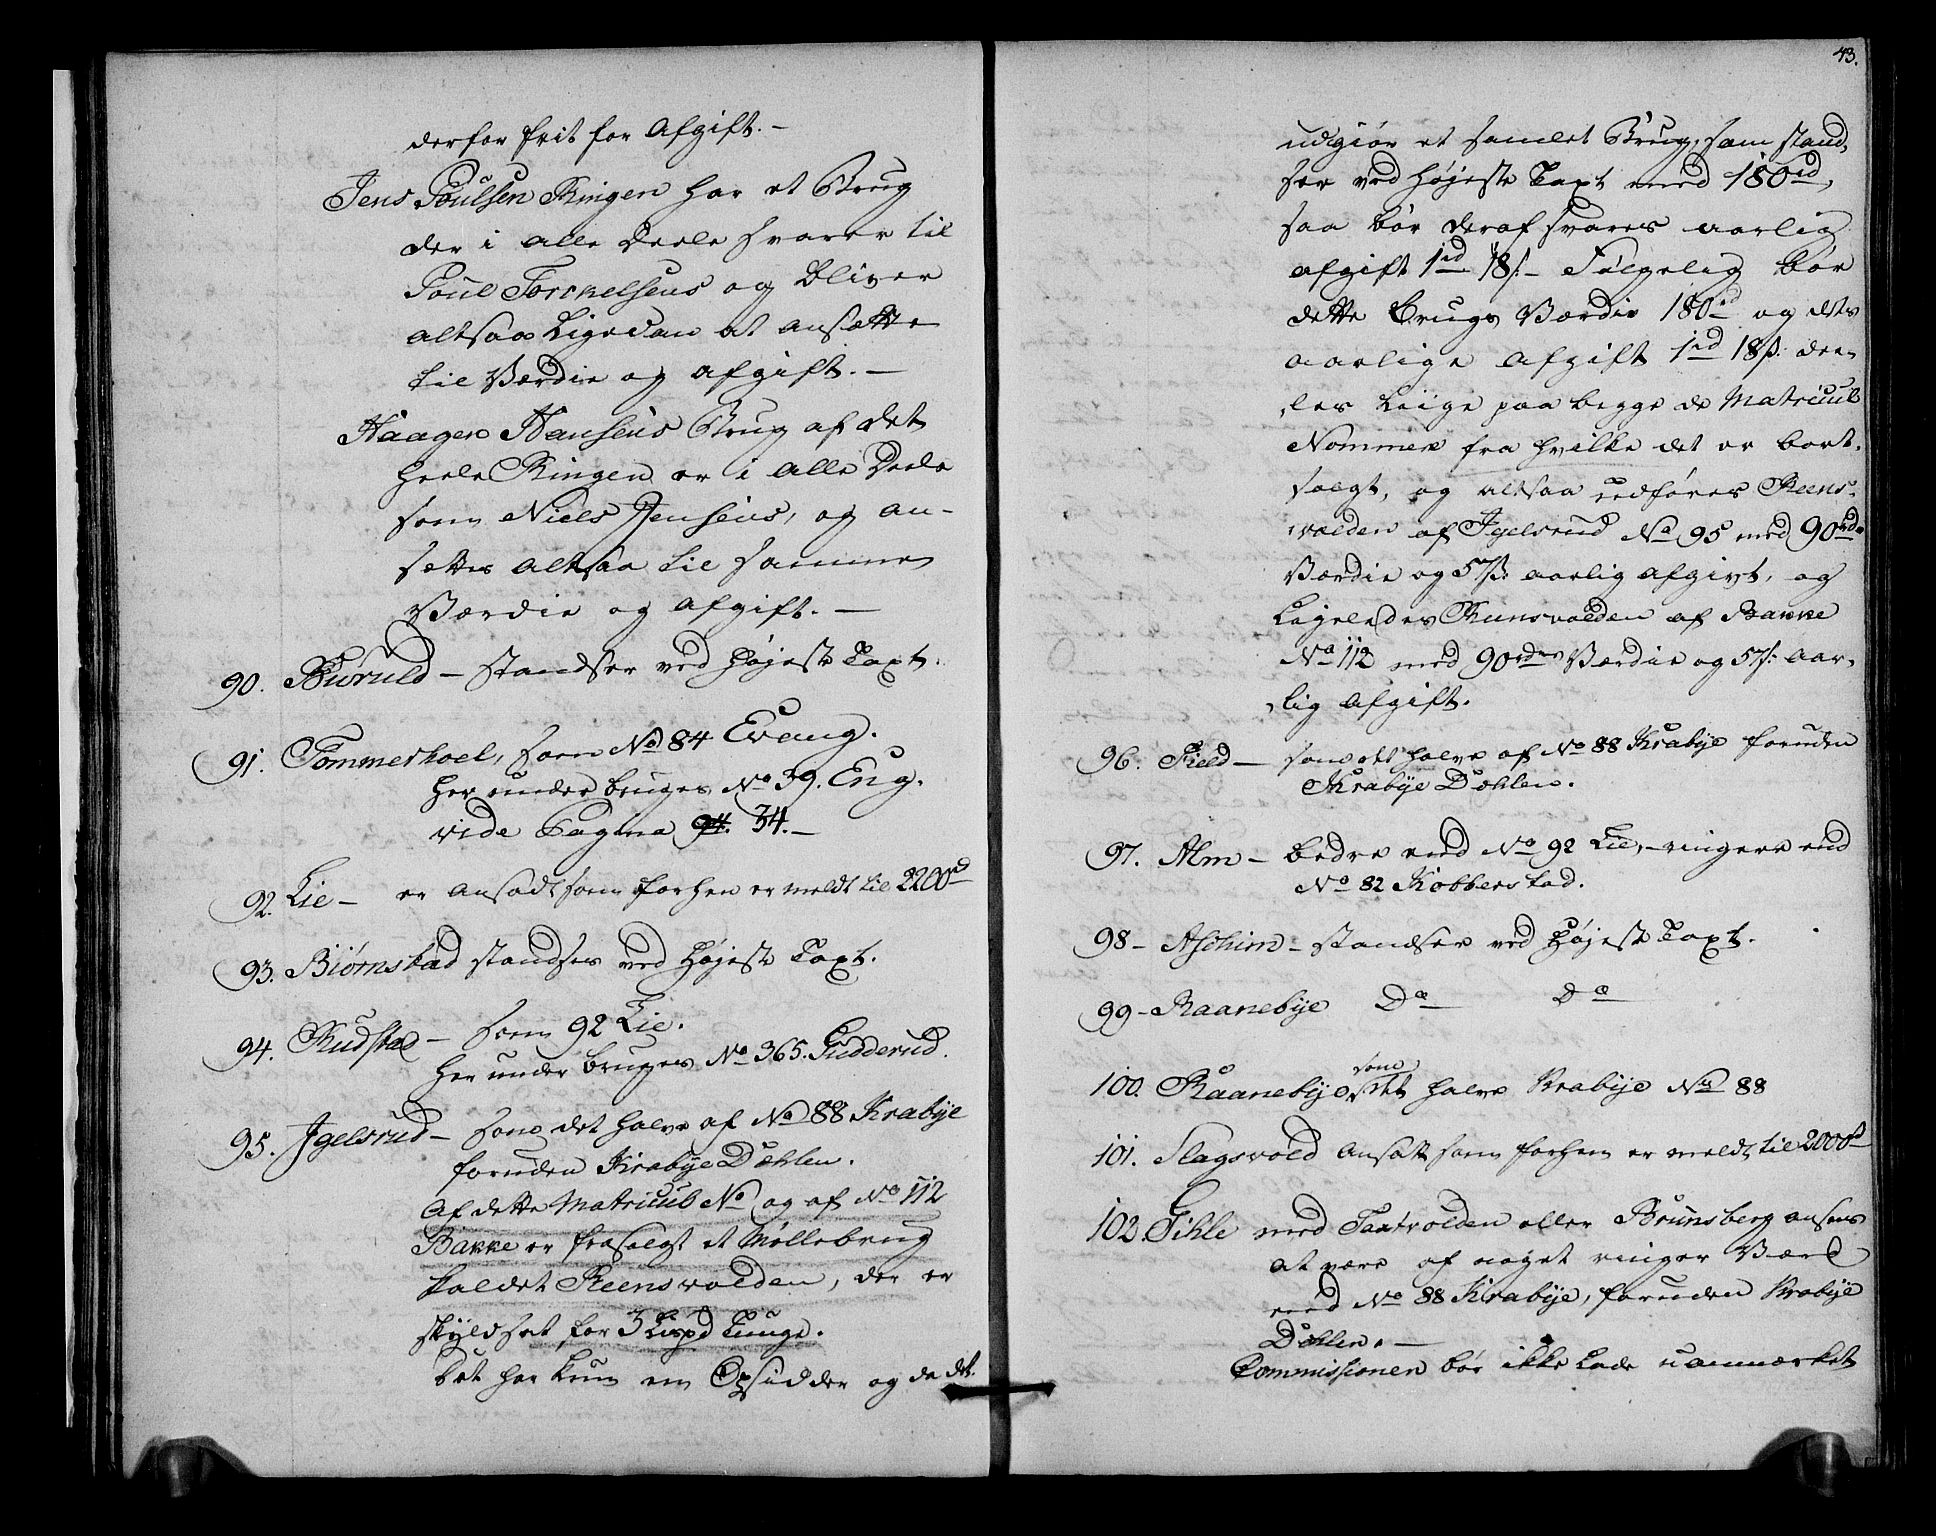 derfor frit for Afgift. –
Jens Poulsen Ringen har et Brug
der i alle Deele svarer til
Poul Torchelsens og bliver
altsaa Ligedan at ansætte
til Værdie og Afgift. –
Haagen Hansens Brug af det
heele Ringen er i alle Deele
som Niels Jensens, og an-
sættes altsaa til samme
Værdie og Afgift. –
90. Buruld – standser ved høieste Taxt.
91. Tommerhoel, som No 84 Evang.
her under bruges No 39. Eug.
vide Pagina 34. –
92. Lie – er ansadt som forhen er meldt til 2200 rd
93. Biørnstad standses ved høieste Taxt.
94. Rudstad – som 92 Lie.
her under bruges No 365. Gudderud.
95. Igelsrud – som det halve af No 88 Krabye
foruden Krabye Dæhlen.
Af dette Matricul No og af No 112
Bakke er frasolgt et Møllebrug
kaldet Reensvolden, der er
skyldsat for 3 Lispd Tunge.
Det har kun en Opsidder og da det
43.
udgiør et samlet Brug, som stand,
ser ved høieste Taxt med 180 rd,
saa bør deraf svares aarlig
afgift 1 rd 18 s. – Følgelig bør
dette Brugs Værdie 180 rd og dets
aarlige afgift 1 rd 18 s. dee-
les liige paa begge de Matricul
Nommere fra hvilke det er bort-
solgt, og altsaa udføres Reens-
volden af Igelsrud No 95 med 90 rdr
Værdie og 57 s. aarlig afgivt, og
Ligeledes Rensvolden af Bakke
No 112 med 90 rdrs Værdie og 57 s. aar-
lig Afgift.
96. Field – som det halve af No 88 Krabye foruden
Krabye Dæhlen.
97. Alm – bedre end No 92 Lie, – ringere end
No 82 Kobberstad.
98 – Aschim – standser ved høieste Taxt.
99 – Raanebye Do Do
100. Raanebye som det halve Krabye No 88
101. Slagsvold ansatt som forhen er meldt til 2000 rd
102. Gihle med Taxtvolden eller Brunsberg ansees
at være af noget ringer Værd
end No 88 Krabye, foruden Krabye
Dæhlen. –
Commissionen bør ikke lade uanmærket